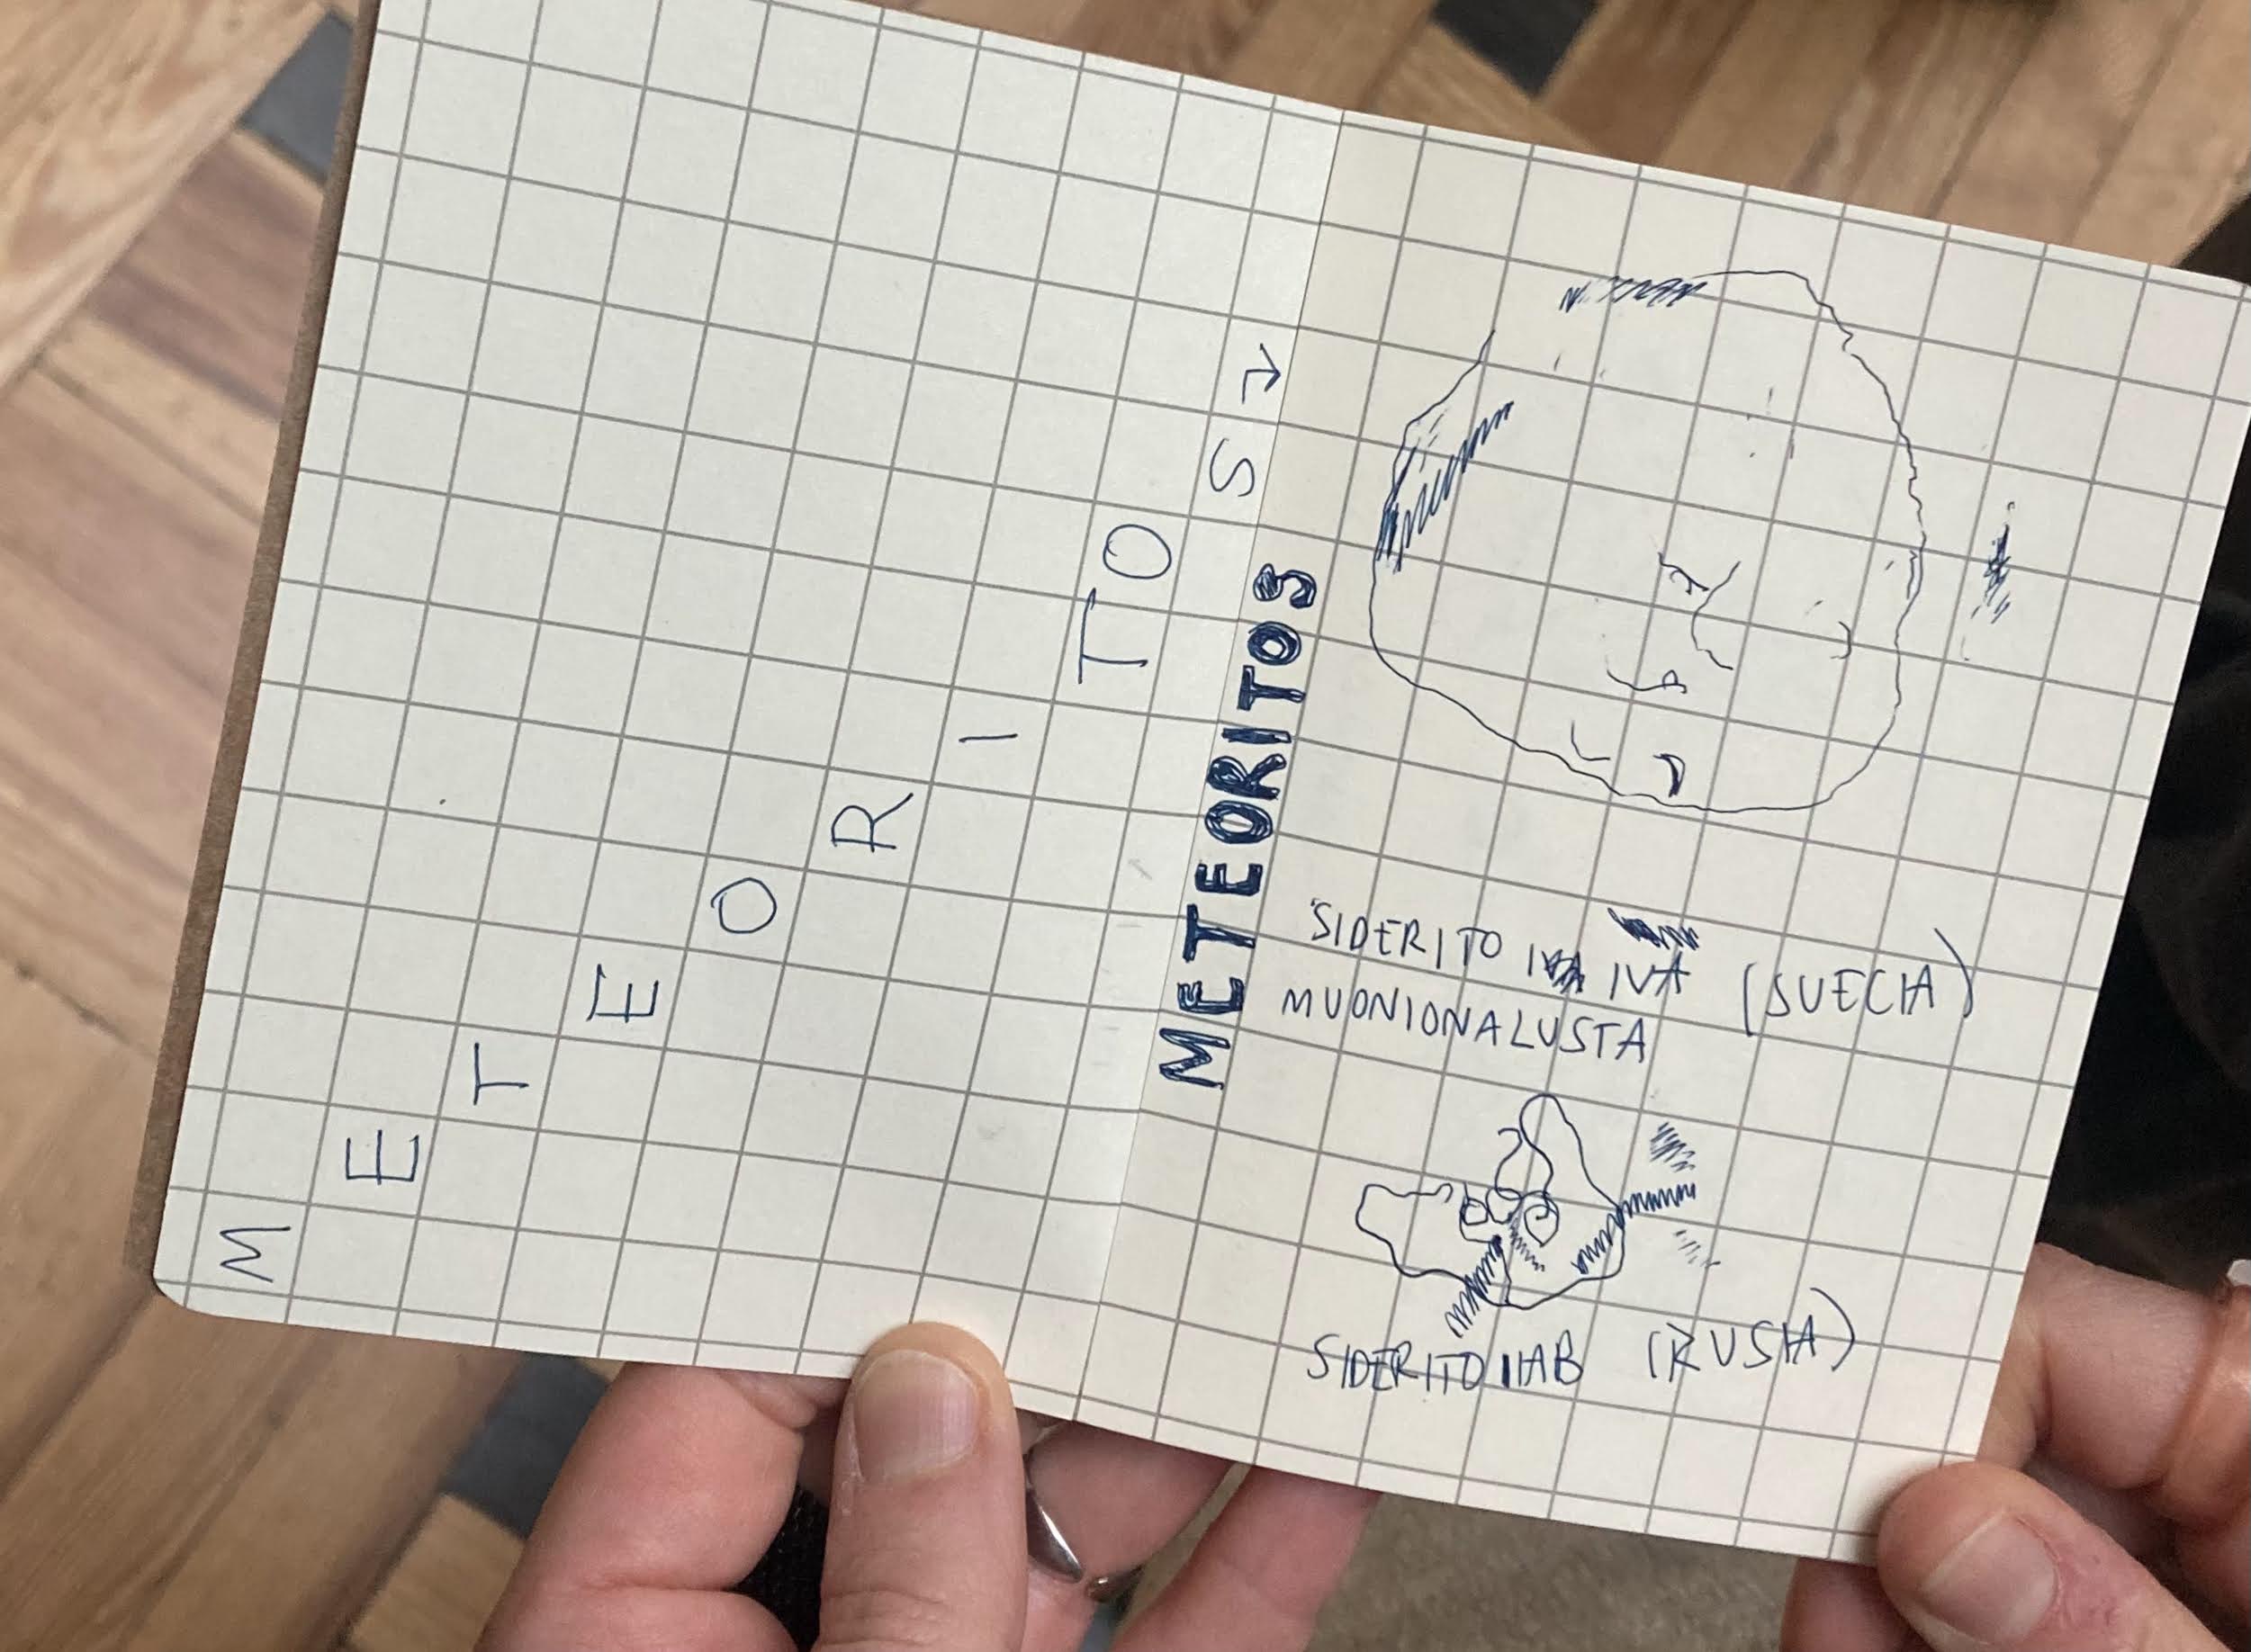 METEORITOS →
METEORITOS
SIDERITO IVA (SUECIA)
MUONIONALUSTA
SIDERITO IIAB (RUSIA)